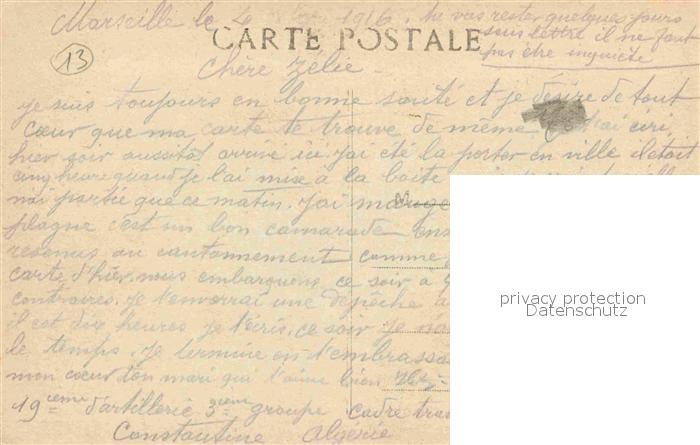 Marseille le 4 1916. tu vas rester quelques jours
sans lettre il ne faut
pas être inquiète
CARTE POSTALE
13
Chère Zélie
je suis toujours en bonne santé et je désire de tout
cœur que ma carte te trouve de même
hier soir aussitôt arrivé ici j'ai été la porter en ville il était
cinq heure quand je l'ai mise à la boite
partie que ce matin. j'ai
c'est un bon camarade
revenus au cantonnement comme
carte d'hier. nous embarquons ce soir a
contraires. je t'enverrai une dépêche
il est dix heures je t'écris. ce soir je
le temps. je termine en t'embrassa
mon cœur ton mari qui t'aime bien
19ième d'artillerie 3ième groupe cadre
Constantine Algérie
privacy protection
Datenschutz